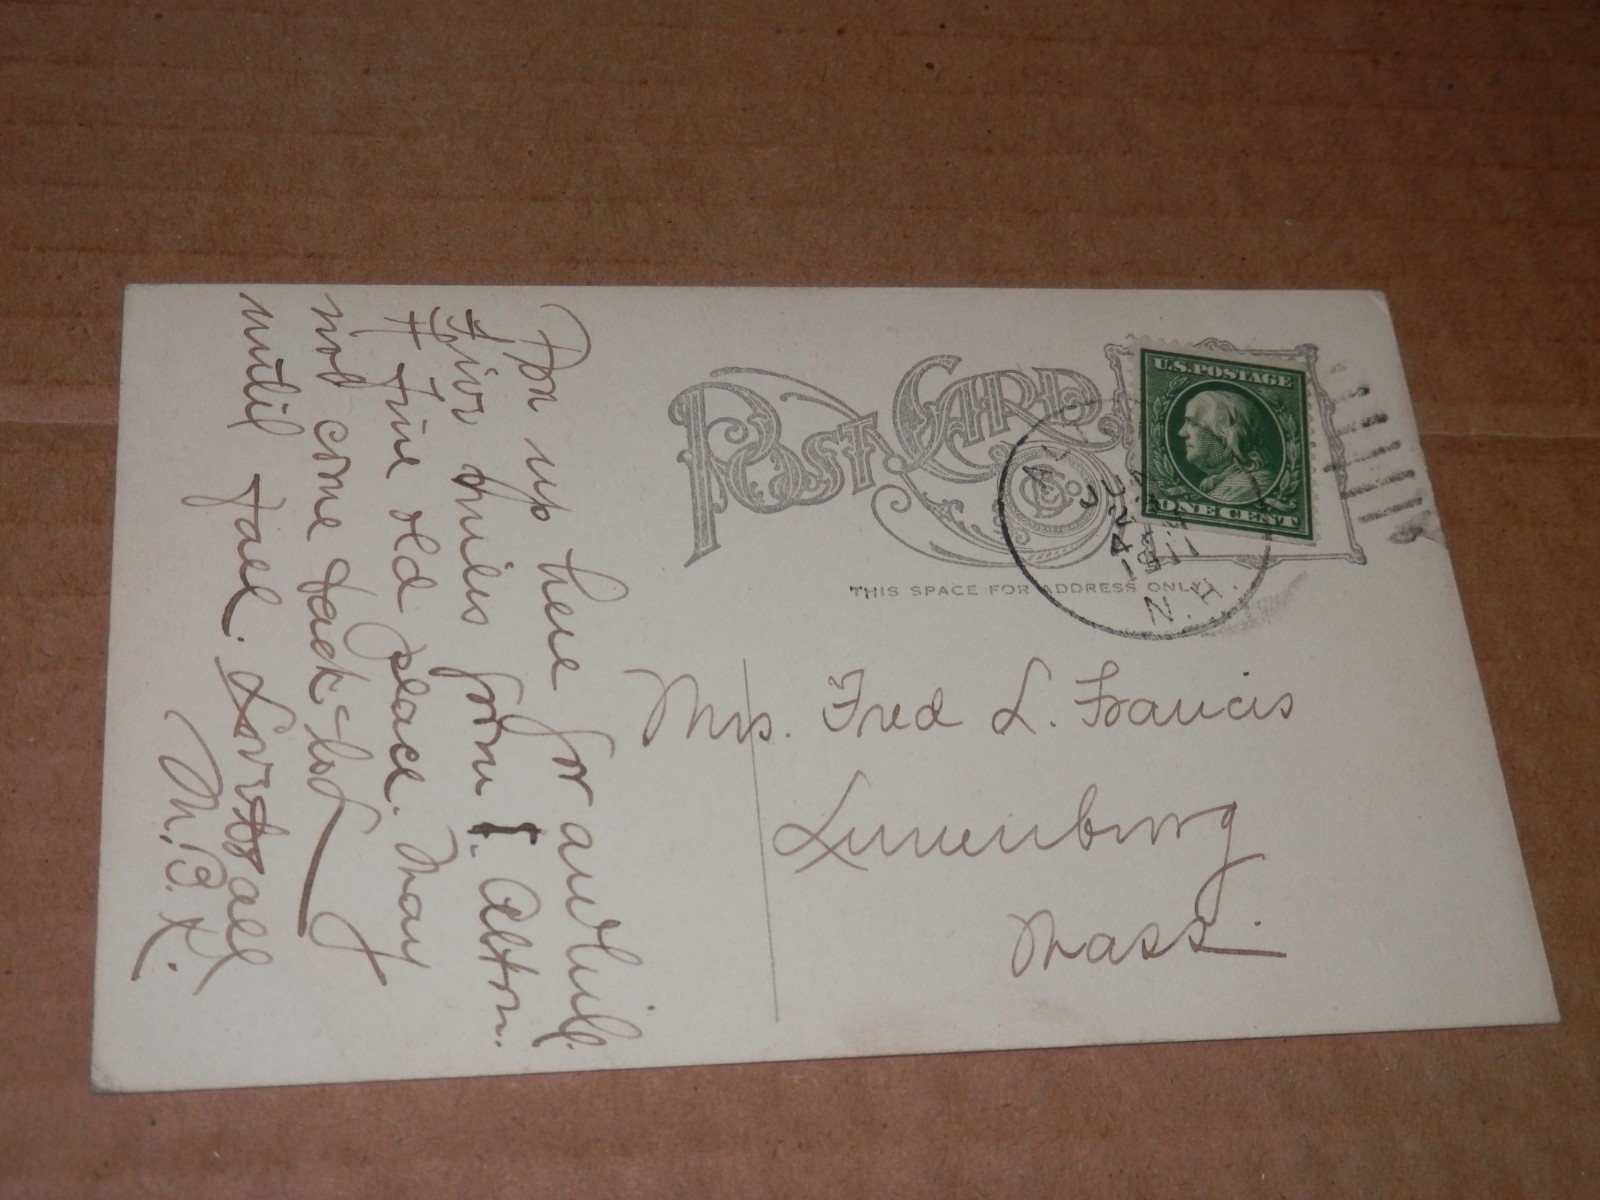 POST CARD
U.S. POSTAGE
ONE CENT
THIS SPACE FOR ADDRESS ONLY
N.H.
Mrs. Fred L. Francis
Lunenburg
Mass.
Am up here for awhile.
Five miles from Alton.
A fine old place. May
not come back
until fall. Love to all
M.B.K.